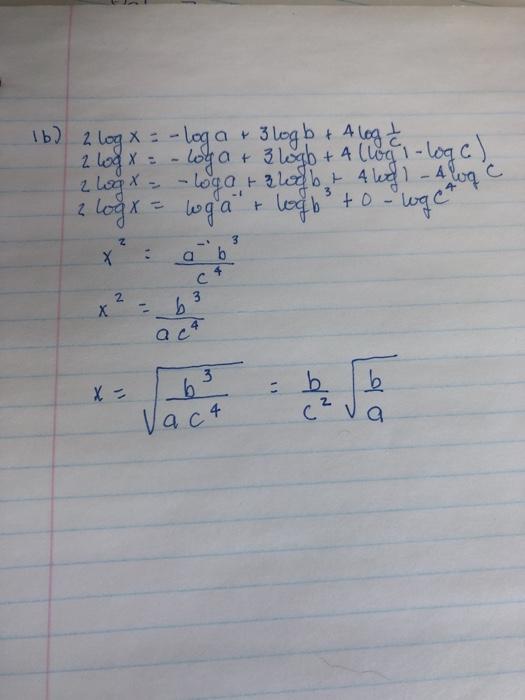 1b) 2 log x = -log a + 3 log b + 4 log 1/c
2 log x = -log a + 3 log b + 4 (log 1 - log c)
2 log x = -log a + 3 log b + 4 log 1 - 4 log c
2 log x = log a⁻¹ + log b³ + 0 - log c⁴
x² = a⁻¹ b³ / c⁴
x² = b³ / a c⁴
x = √(b³ / a c⁴) = b/c² √(b/a)